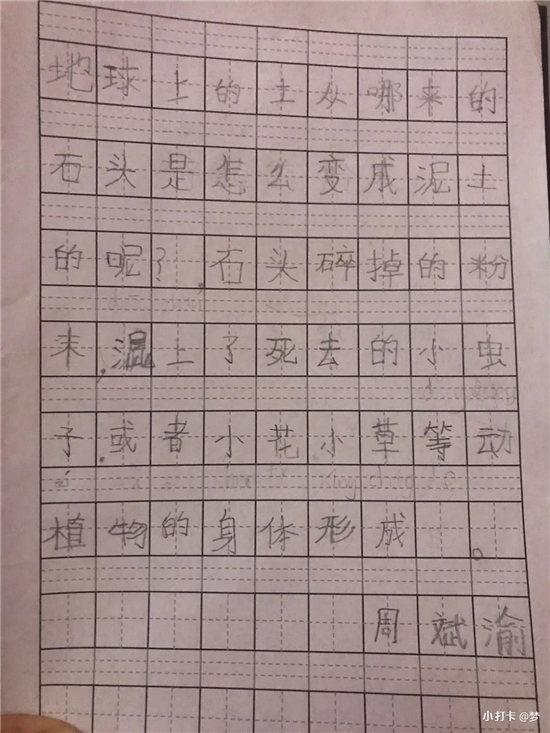 地球上的土从哪来的
石头是怎么变成泥土
的呢？，石头碎掉的粉
末，混上了死去的小虫
子，或者小花，小草等动
植物的身体形成。
周斌渝
小打卡 @梦